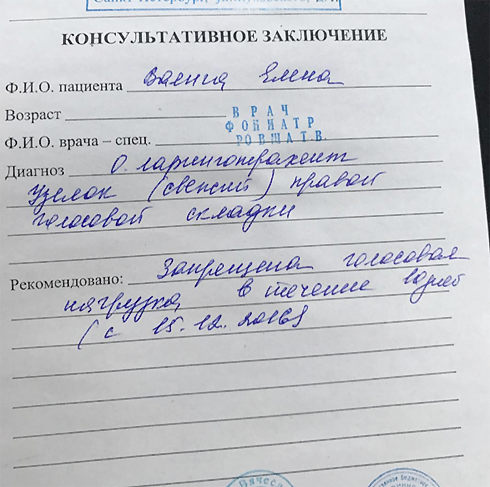 Санкт-Петербург,
КОНСУЛЬТАТИВНОЕ ЗАКЛЮЧЕНИЕ
Ф.И.О. пациента Ваенга Елена
Возраст
ВРАЧ
ФОНИАТР
Ф.И.О. врача – спец. РОВШАТ В.
Диагноз О. ларинготрахеит
Узелок (свежий) правой
голосовой складки
Рекомендовано: Запрещена голосовая
нагрузка в течение
(с 15.12.2016